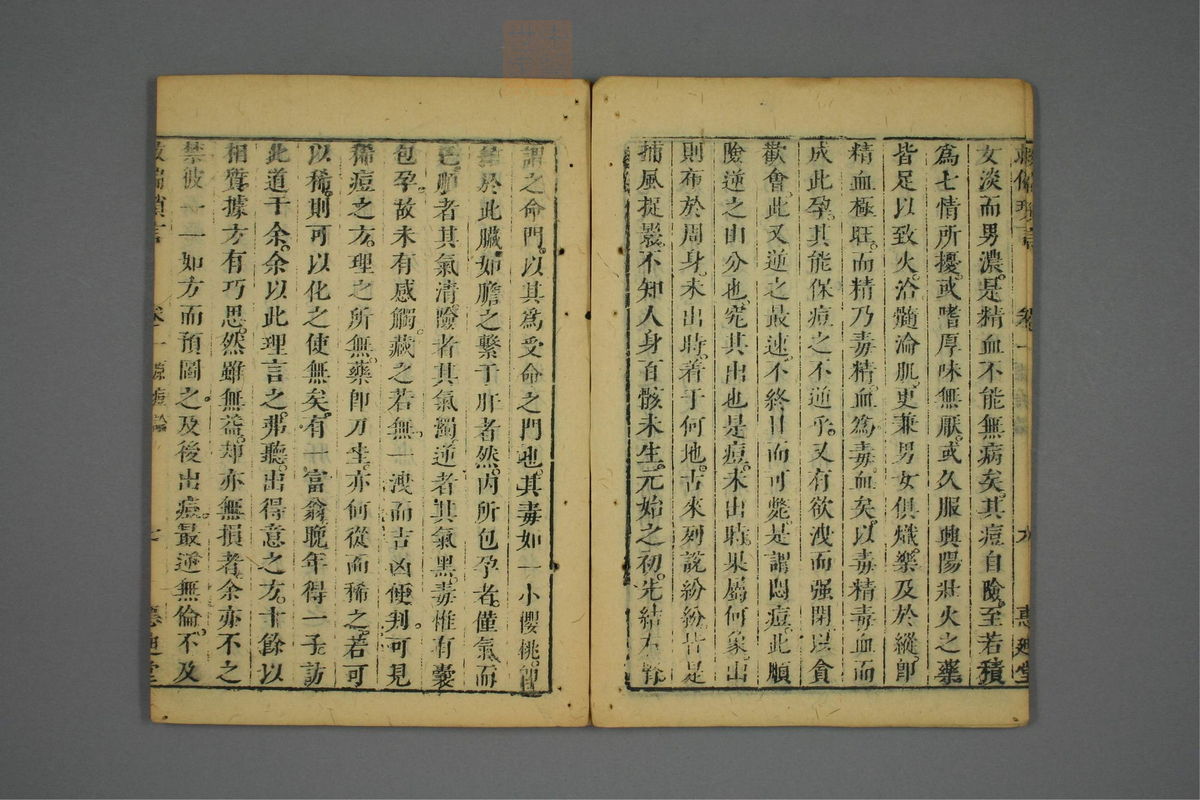 女淡而男濃是精血不能無病矣其痘自險至若積
爲七情所擾或嗜厚味無厭或久服興陽壯火之藥
皆足以致火洽髓淪肌更兼男女俱熾藥及於縱卽
精血極旺而精乃毒精血爲毒血矣以毒精毒血而
成此孕其能保痘之不逆乎又有欲洩而强閉以貪
歡會此又逆之最速不終日而可斃是謂悶痘此順
險逆之由分也究其出也是痘未出時果屬何象出
則布於周身未出時着于何地古來列說紛紛皆是
捕風捉影不知人身百骸未生元始之初先結右腎
謂之命門以其爲受命之門也其毒如一小櫻桃卽
於此臟如膽之繫于肝者然内所包孕者僅氣而
已順者其氣清險者其氣濁逆者其氣黑毒惟有囊
包孕故未有感觸藏之若無一洩而吉凶便判可見
稀痘之方理之所無藥卽刀圭亦何從而稀之若可
以稀則可以化之使無矣有一富翁晚年得一子訪
此道于余余以此理言之弗聽出得意之方十餘以
相質據方有巧思然雖無益却亦無損者余亦不之
禁彼一一如方而預圖之及後出痘最逆無倫不及
救偏瑣言 卷一 原痘論 七 惠迪堂